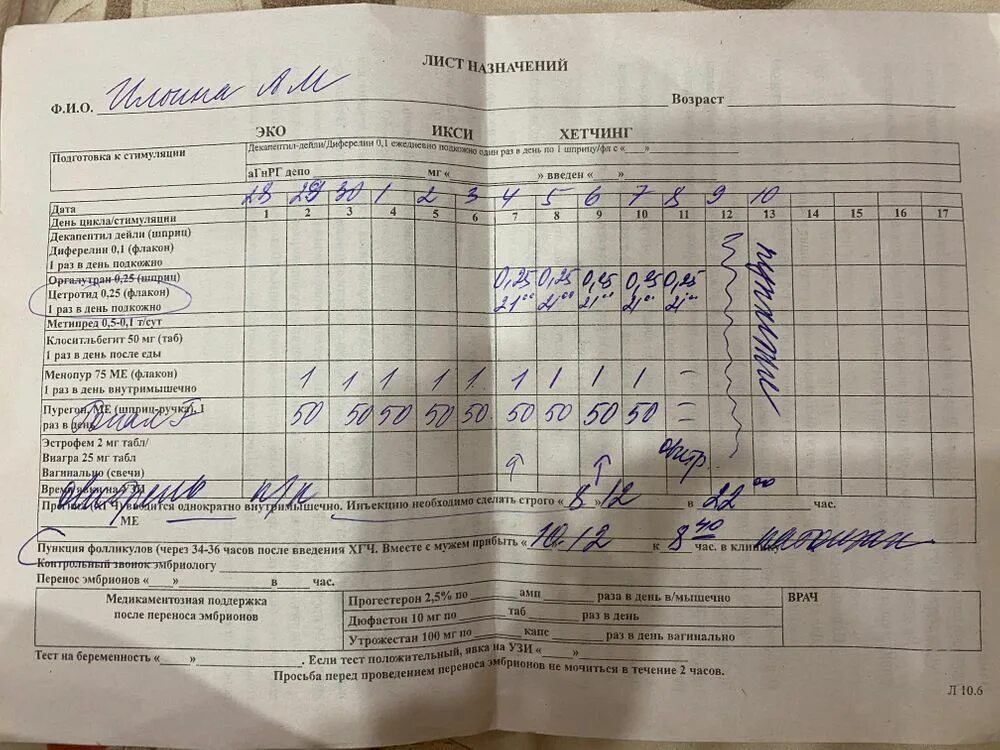 ЛИСТ НАЗНАЧЕНИЙ
Ф.И.О. А М
Возраст
ЭКО ИКСИ ХЕТЧИНГ
Подготовка к стимуляции
Декапептил-дейли/Диферелин 0,1 ежедневно подкожно один раз в день по 1 шприцу/фл с «___»
аГнРГ депо ____ мг «____» введен «___»
Дата 28 29 30 1 2 3 4 5 6 7 8 9 10
День цикла/стимуляции 1 2 3 4 5 6 7 8 9 10 11 12 13 14 15 16 17
Декапептил дейли (шприц)
Диферелин 0,1 (флакон)
1 раз в день подкожно
Оргалутран 0,25 (шприц)
Цетротид 0,25 (флакон) 0,25 0,25 0,25 0,25 0,25
1 раз в день подкожно 21⁰⁰ 21⁰⁰ 21⁰⁰ 21⁰⁰ 21⁰⁰
пункции
Метипред 0,5-0,1 т/сут
Клостилбегит 50 мг (таб)
1 раз в день после еды
Менопур 75 МЕ (флакон) 1 1 1 1 1 1 1 1 1 –
1 раз в день внутримышечно
Пурегон, МЕ (шприц-ручка), 1
раз в день Гонал F 50 50 50 50 50 50 50 50 50 =
Эстрофем 2 мг табл/
Виагра 25 мг табл
Вагинально (свечи)
Время явки на УЗИ
п/к
(ХГЧ) вводится однократно внутримышечно. Инъекцию необходимо сделать строго «8»/12 в 22⁰⁰ час.
МЕ
Пункция фолликулов (через 34-36 часов после введения ХГЧ. Вместе с мужем прибыть «10.12 к 8⁴⁰ час. в клинику натощак
Контрольный звонок эмбриологу
Перенос эмбрионов «___» ____ в ___ час.
Медикаментозная поддержка
после переноса эмбрионов
Прогестерон 2,5% по ____ амп ____ раза в день в/мышечно
Дюфастон 10 мг по ____ таб ____ раз в день
Утрожестан 100 мг по ____ капс ____ раз в день вагинально
ВРАЧ
Тест на беременность «___» ____. Если тест положительный, явка на УЗИ «___»
Просьба перед проведением переноса эмбрионов не мочиться в течение 2 часов.
Л 10.6